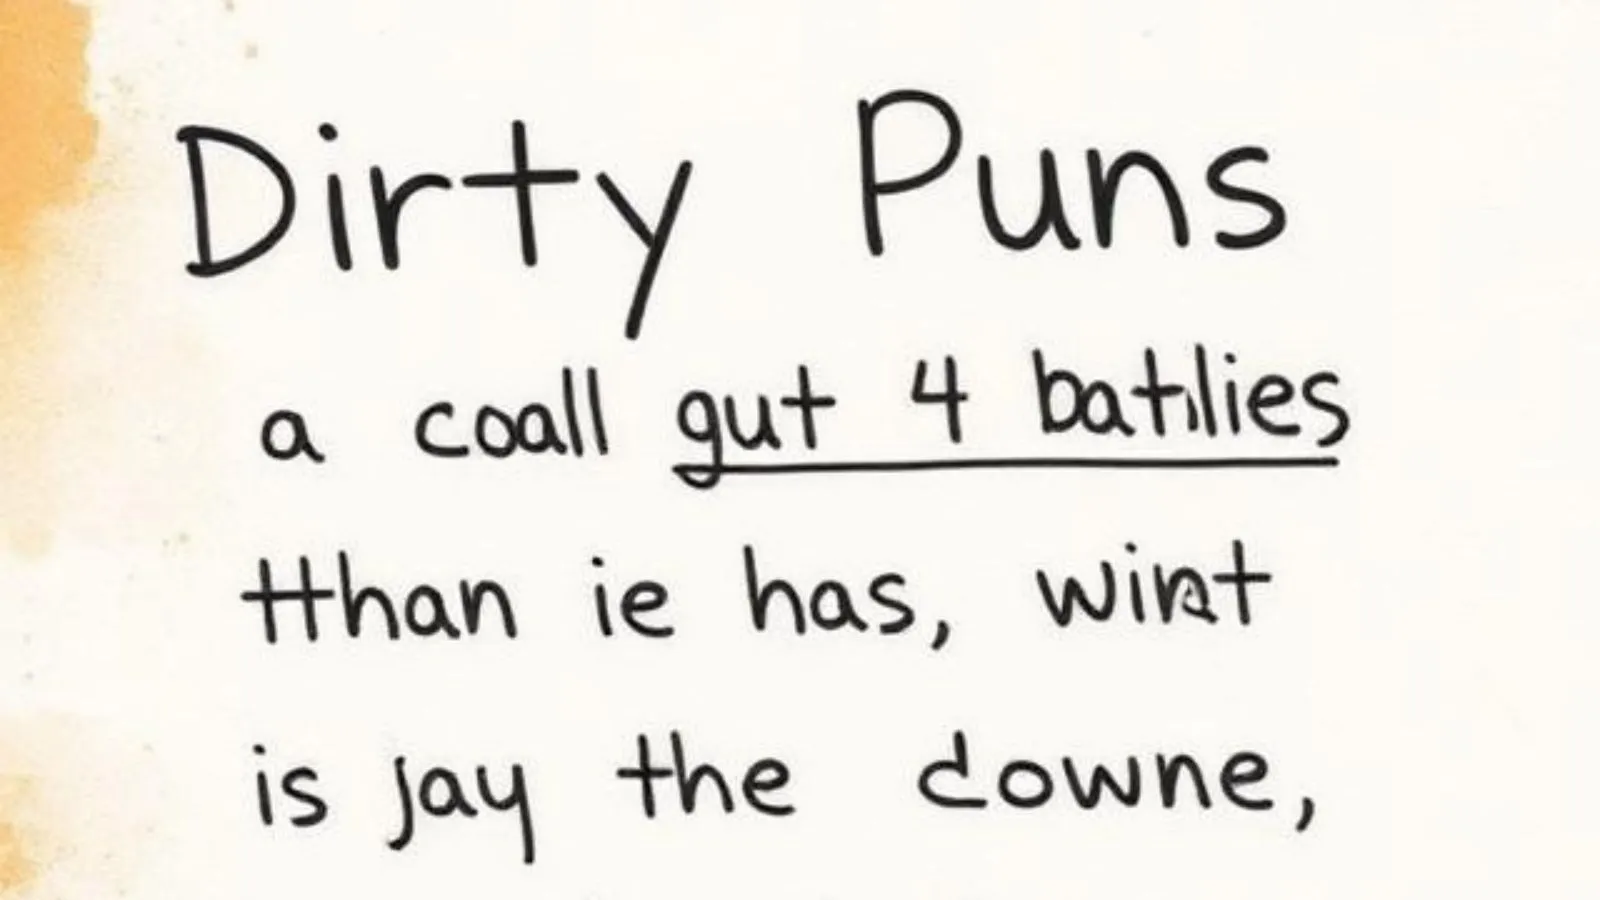 Dirty Puns
a coall gut 4 batilies
tthan ie has, wint
is jay the downe,